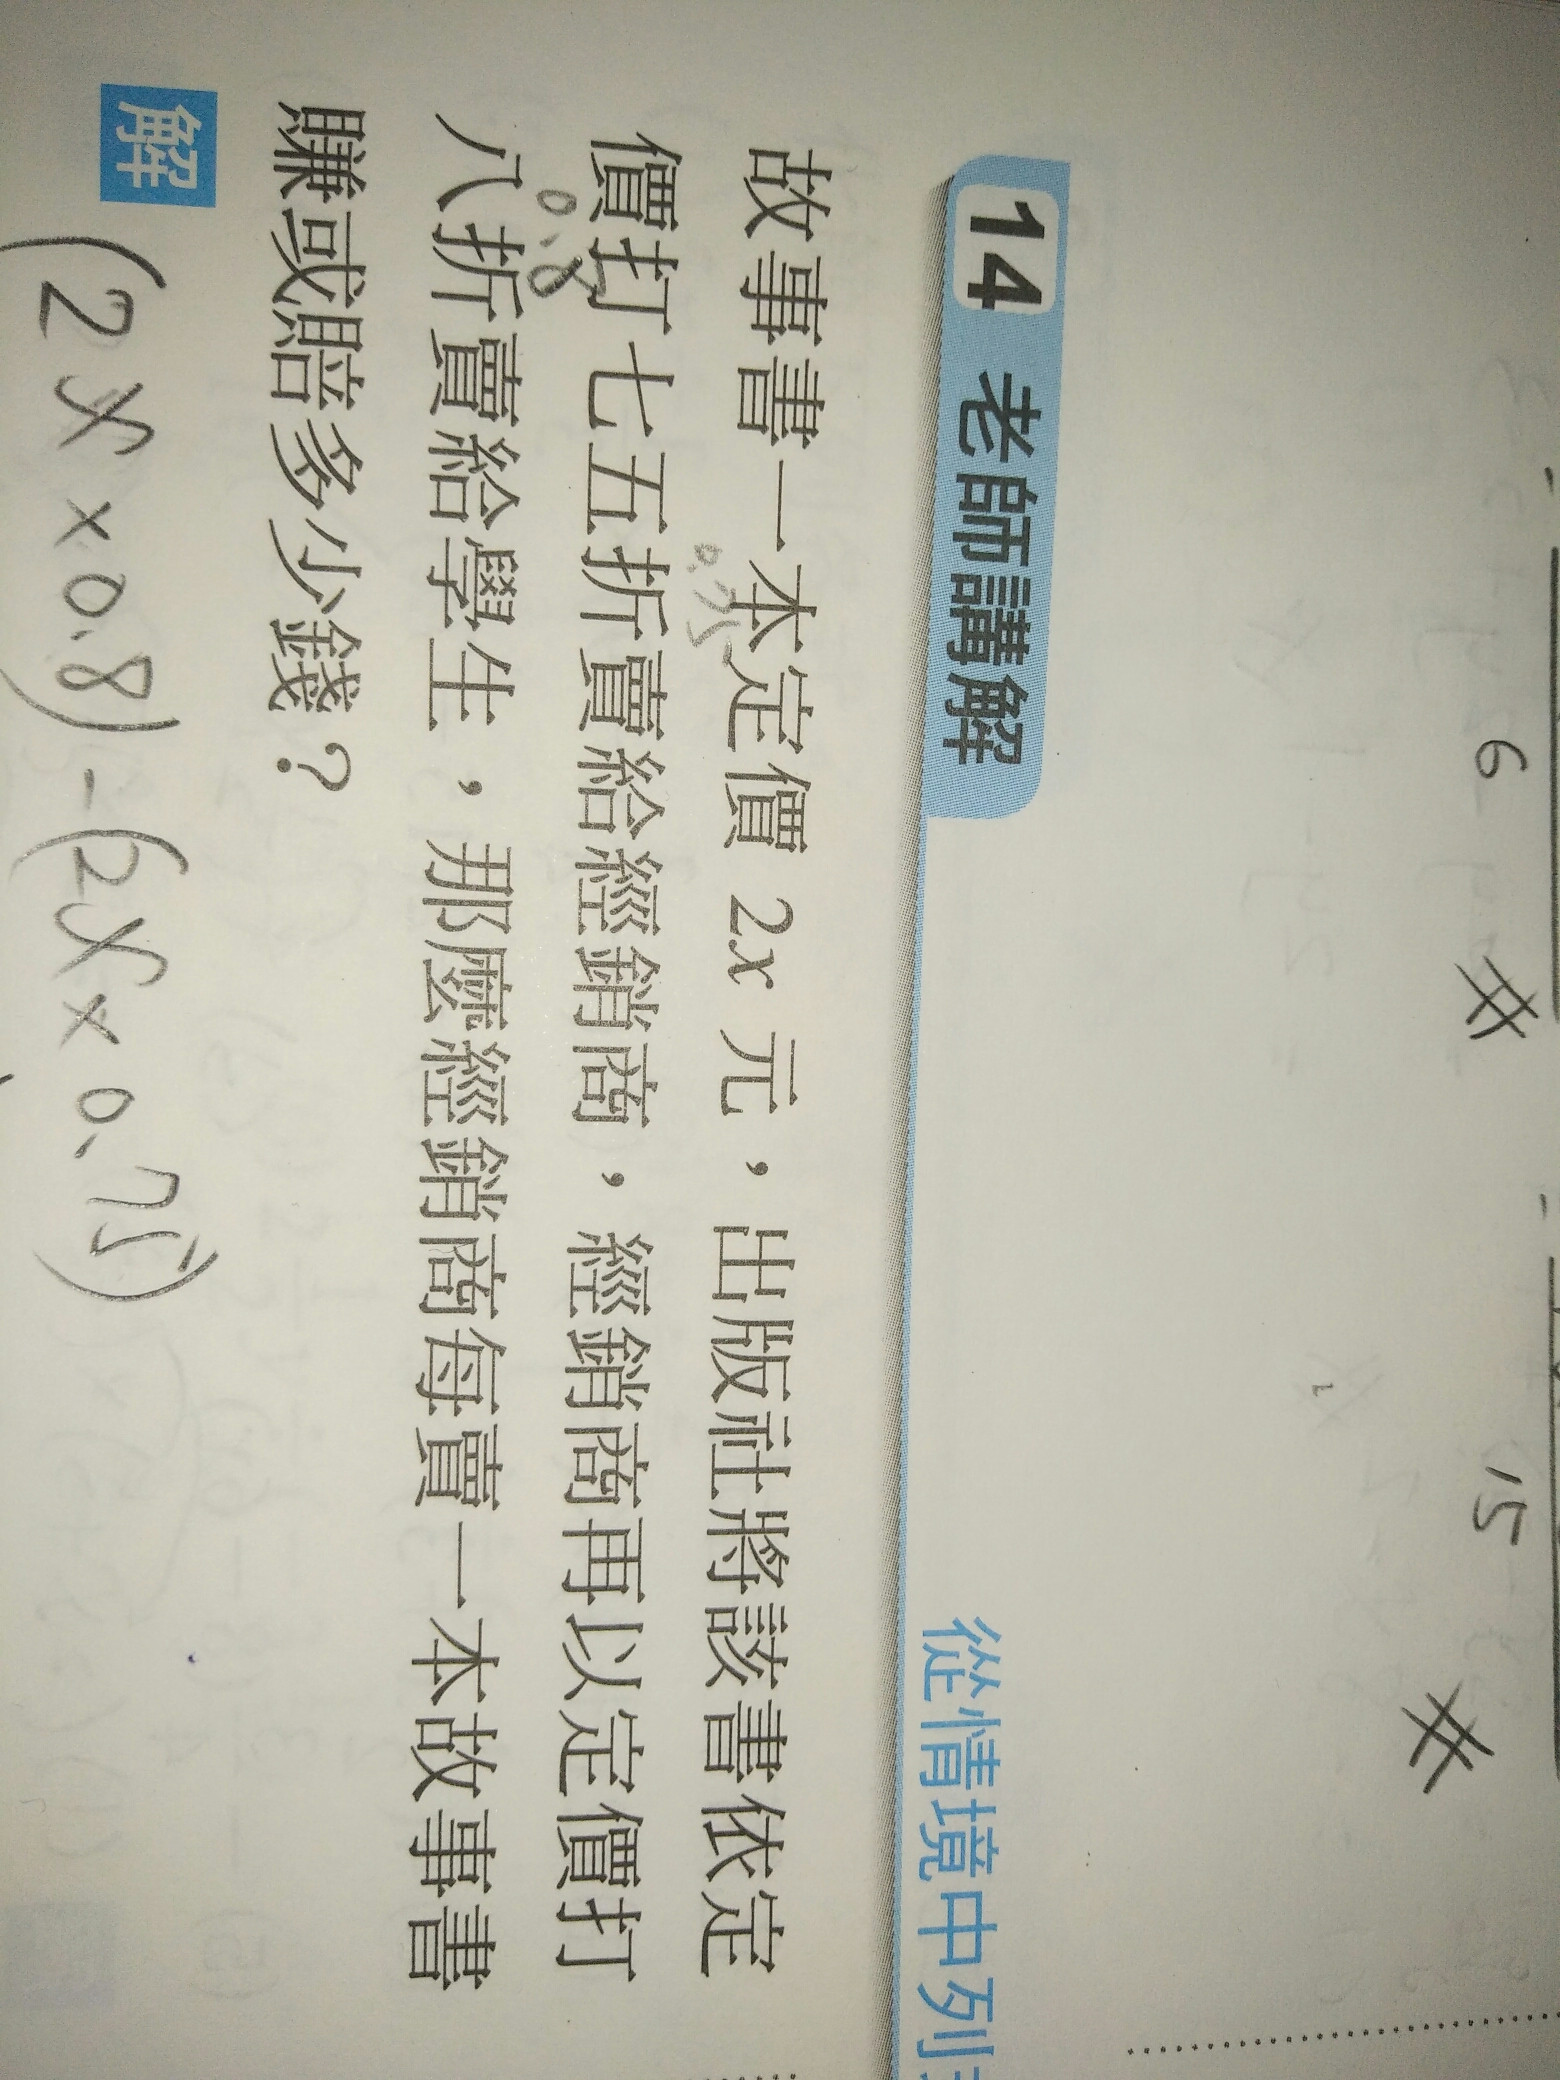 6 #
15 #
14 老師講解
從情境中列
故事書一本定價 2x 元，出版社將該書依定
0.75
價打七五折賣給經銷商，經銷商再以定價打
0.8
八折賣給學生，那麼經銷商每賣一本故事書
賺或賠多少錢？
解
(2x×0.8)-(2x×0.75)